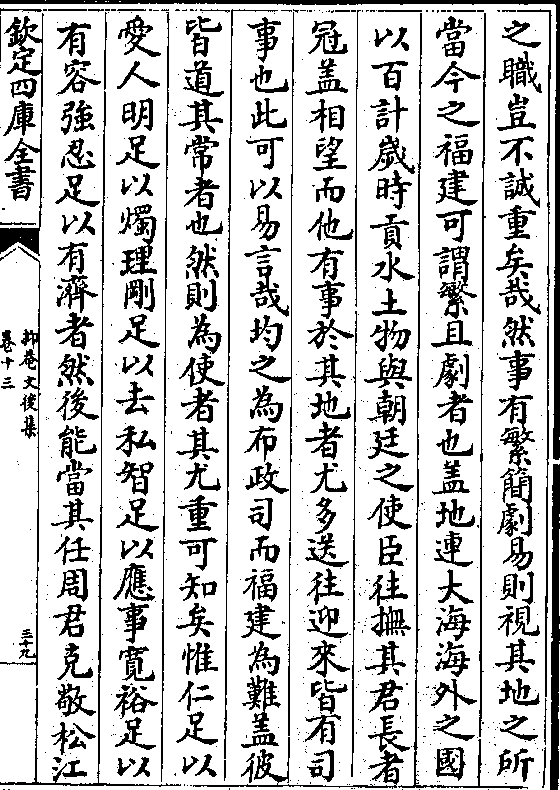 之職豈不誠重矣哉然事有繁簡劇易則視其地之所
當今之福建可謂繁且劇者也盖地連大海海外之國
以百計歲時貢水土物與朝廷之使臣往撫其君長者
冠盖相望而他有事於其地者尤多送往迎來皆有司
事也此可以易言哉均之為布政司而福建為難盖彼
皆道其常者也然則為使者其尤重可知矣惟仁足以
愛人明足以燭理剛足以去私智足以應事寬裕足以
有容強忍足以有濟者然後能當其任周君克敬松江
欽定四庫全書
抑菴文後集
卷十三
三十九